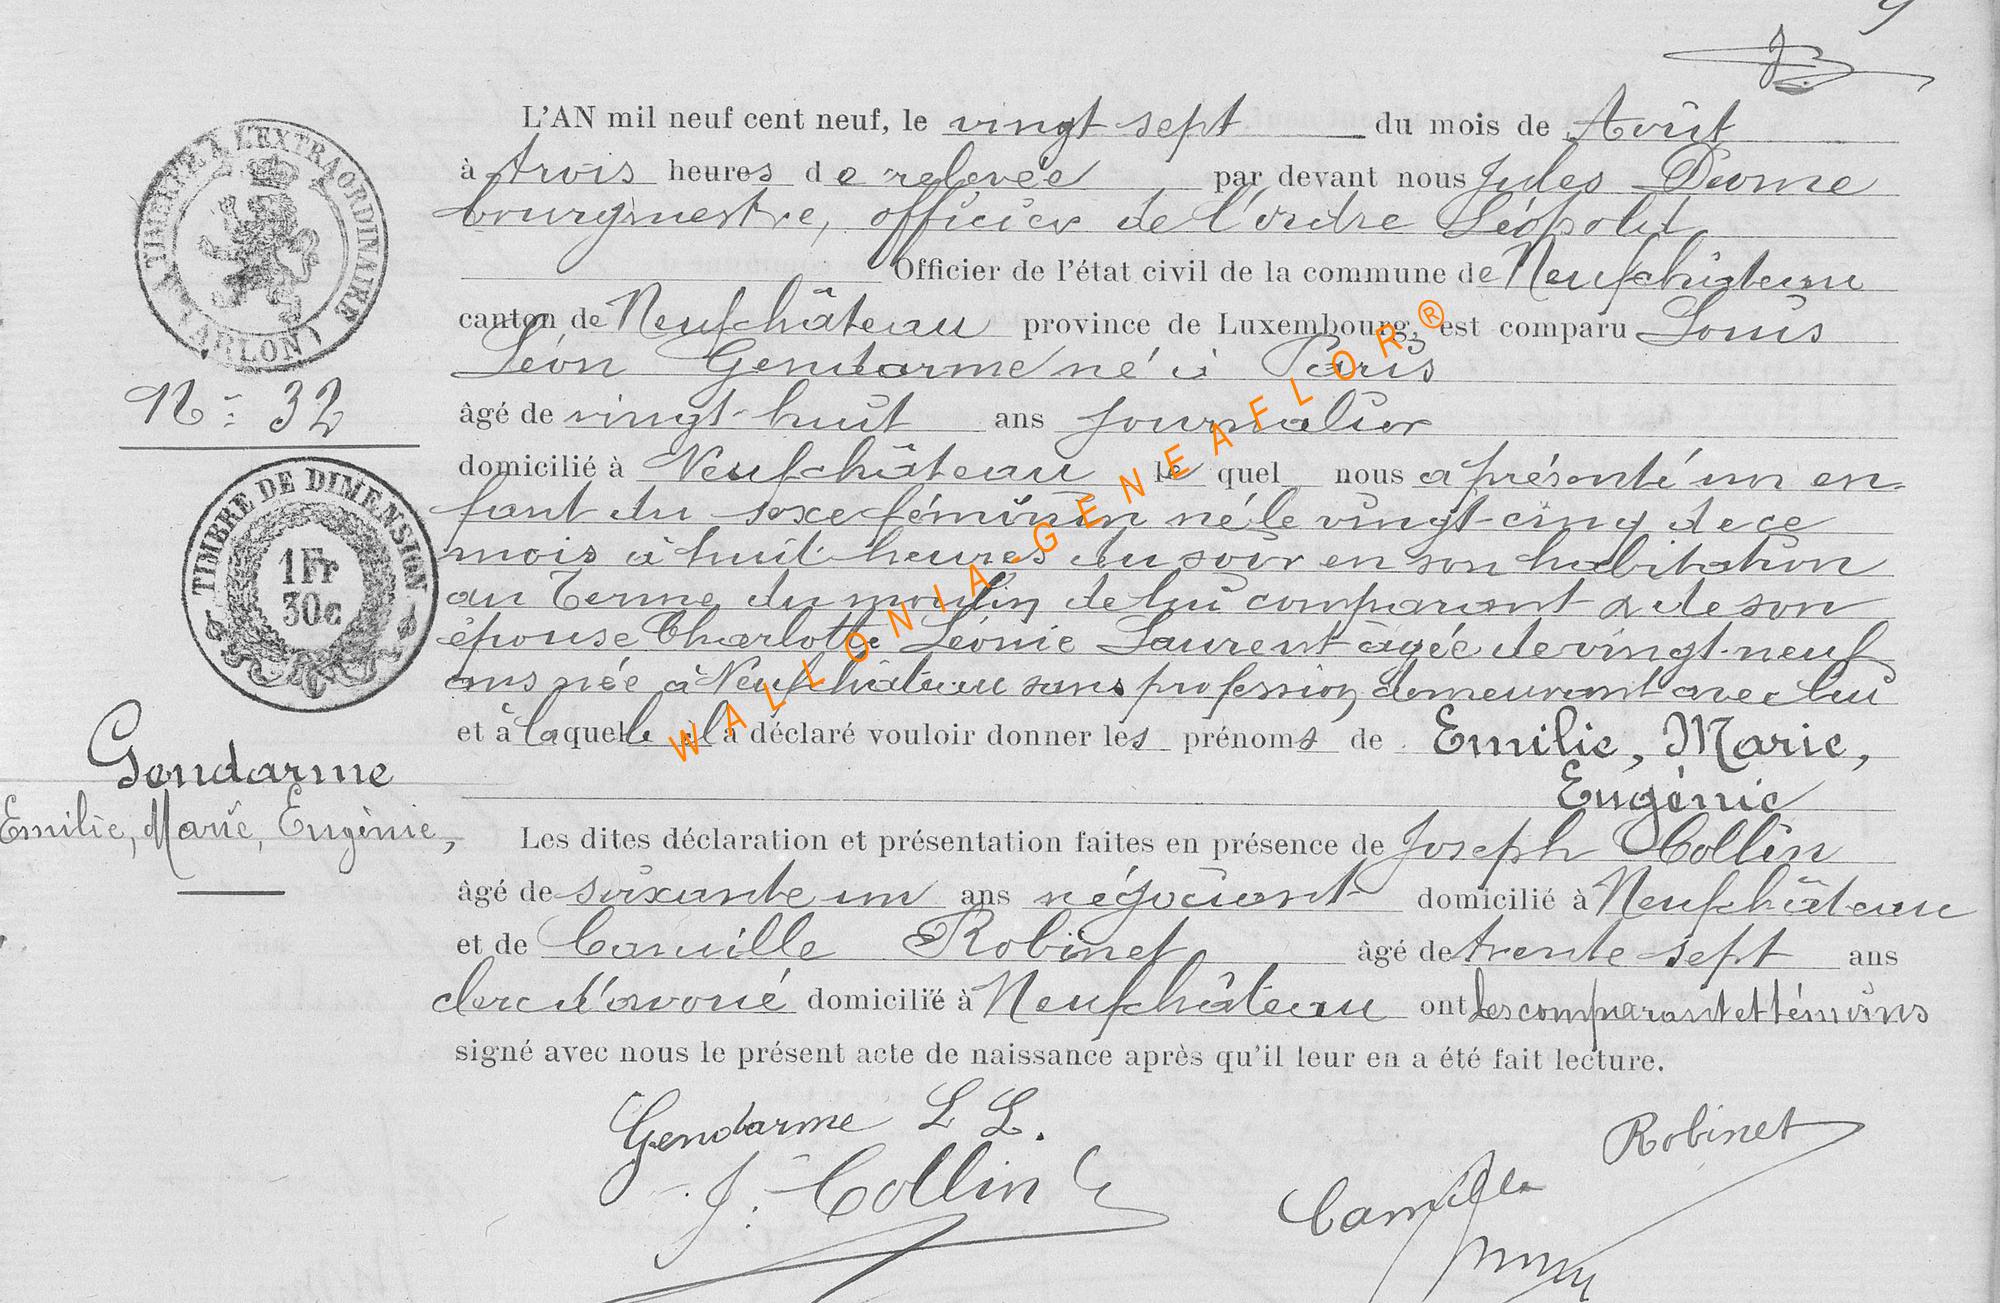 L'AN mil neuf cent neuf, le vingt sept du mois de Août
à trois heures de relevée par devant nous Jules
bourgmestre, officier de l'ordre Léopold
Officier de l'état civil de la commune de Neufchâteau
canton de Neufchâteau province de Luxembourg, est comparu Louis
Léon Gendarme né à Paris
âgé de vingt-huit ans journalier
domicilié à Neufchâteau le quel nous a présenté un en-
fant du sexe féminin né le vingt-cinq de ce
mois à huit heures du soir en son habitation
au Terme du moulin de lui comparant & de son
épouse Charlotte Léonie Laurent âgée de vingt-neuf
ans née à Neufchâteau sans profession demeurant avec lui
et à laquelle il a déclaré vouloir donner les prénoms de Emilie, Marie,
Eugénie
Les dites déclaration et présentation faites en présence de Joseph Collin
âgé de soixante un ans négociant domicilié à Neufchâteau
et de Camille Robinet âgé de trente sept ans
clerc d'avoué domicilié à Neufchâteau ont les comparant et témoins
signé avec nous le présent acte de naissance après qu'il leur en a été fait lecture.
Gendarme L L.
J. Collin
Robinet
Camille
TIMBRE A L'EXTRAORDINAIRE
ARLON
N° 32
TIMBRE DE DIMENSION
1Fr
30c
Gendarme
Emilie, Marie, Eugénie,
WALLONIA-GENEAFLOR®